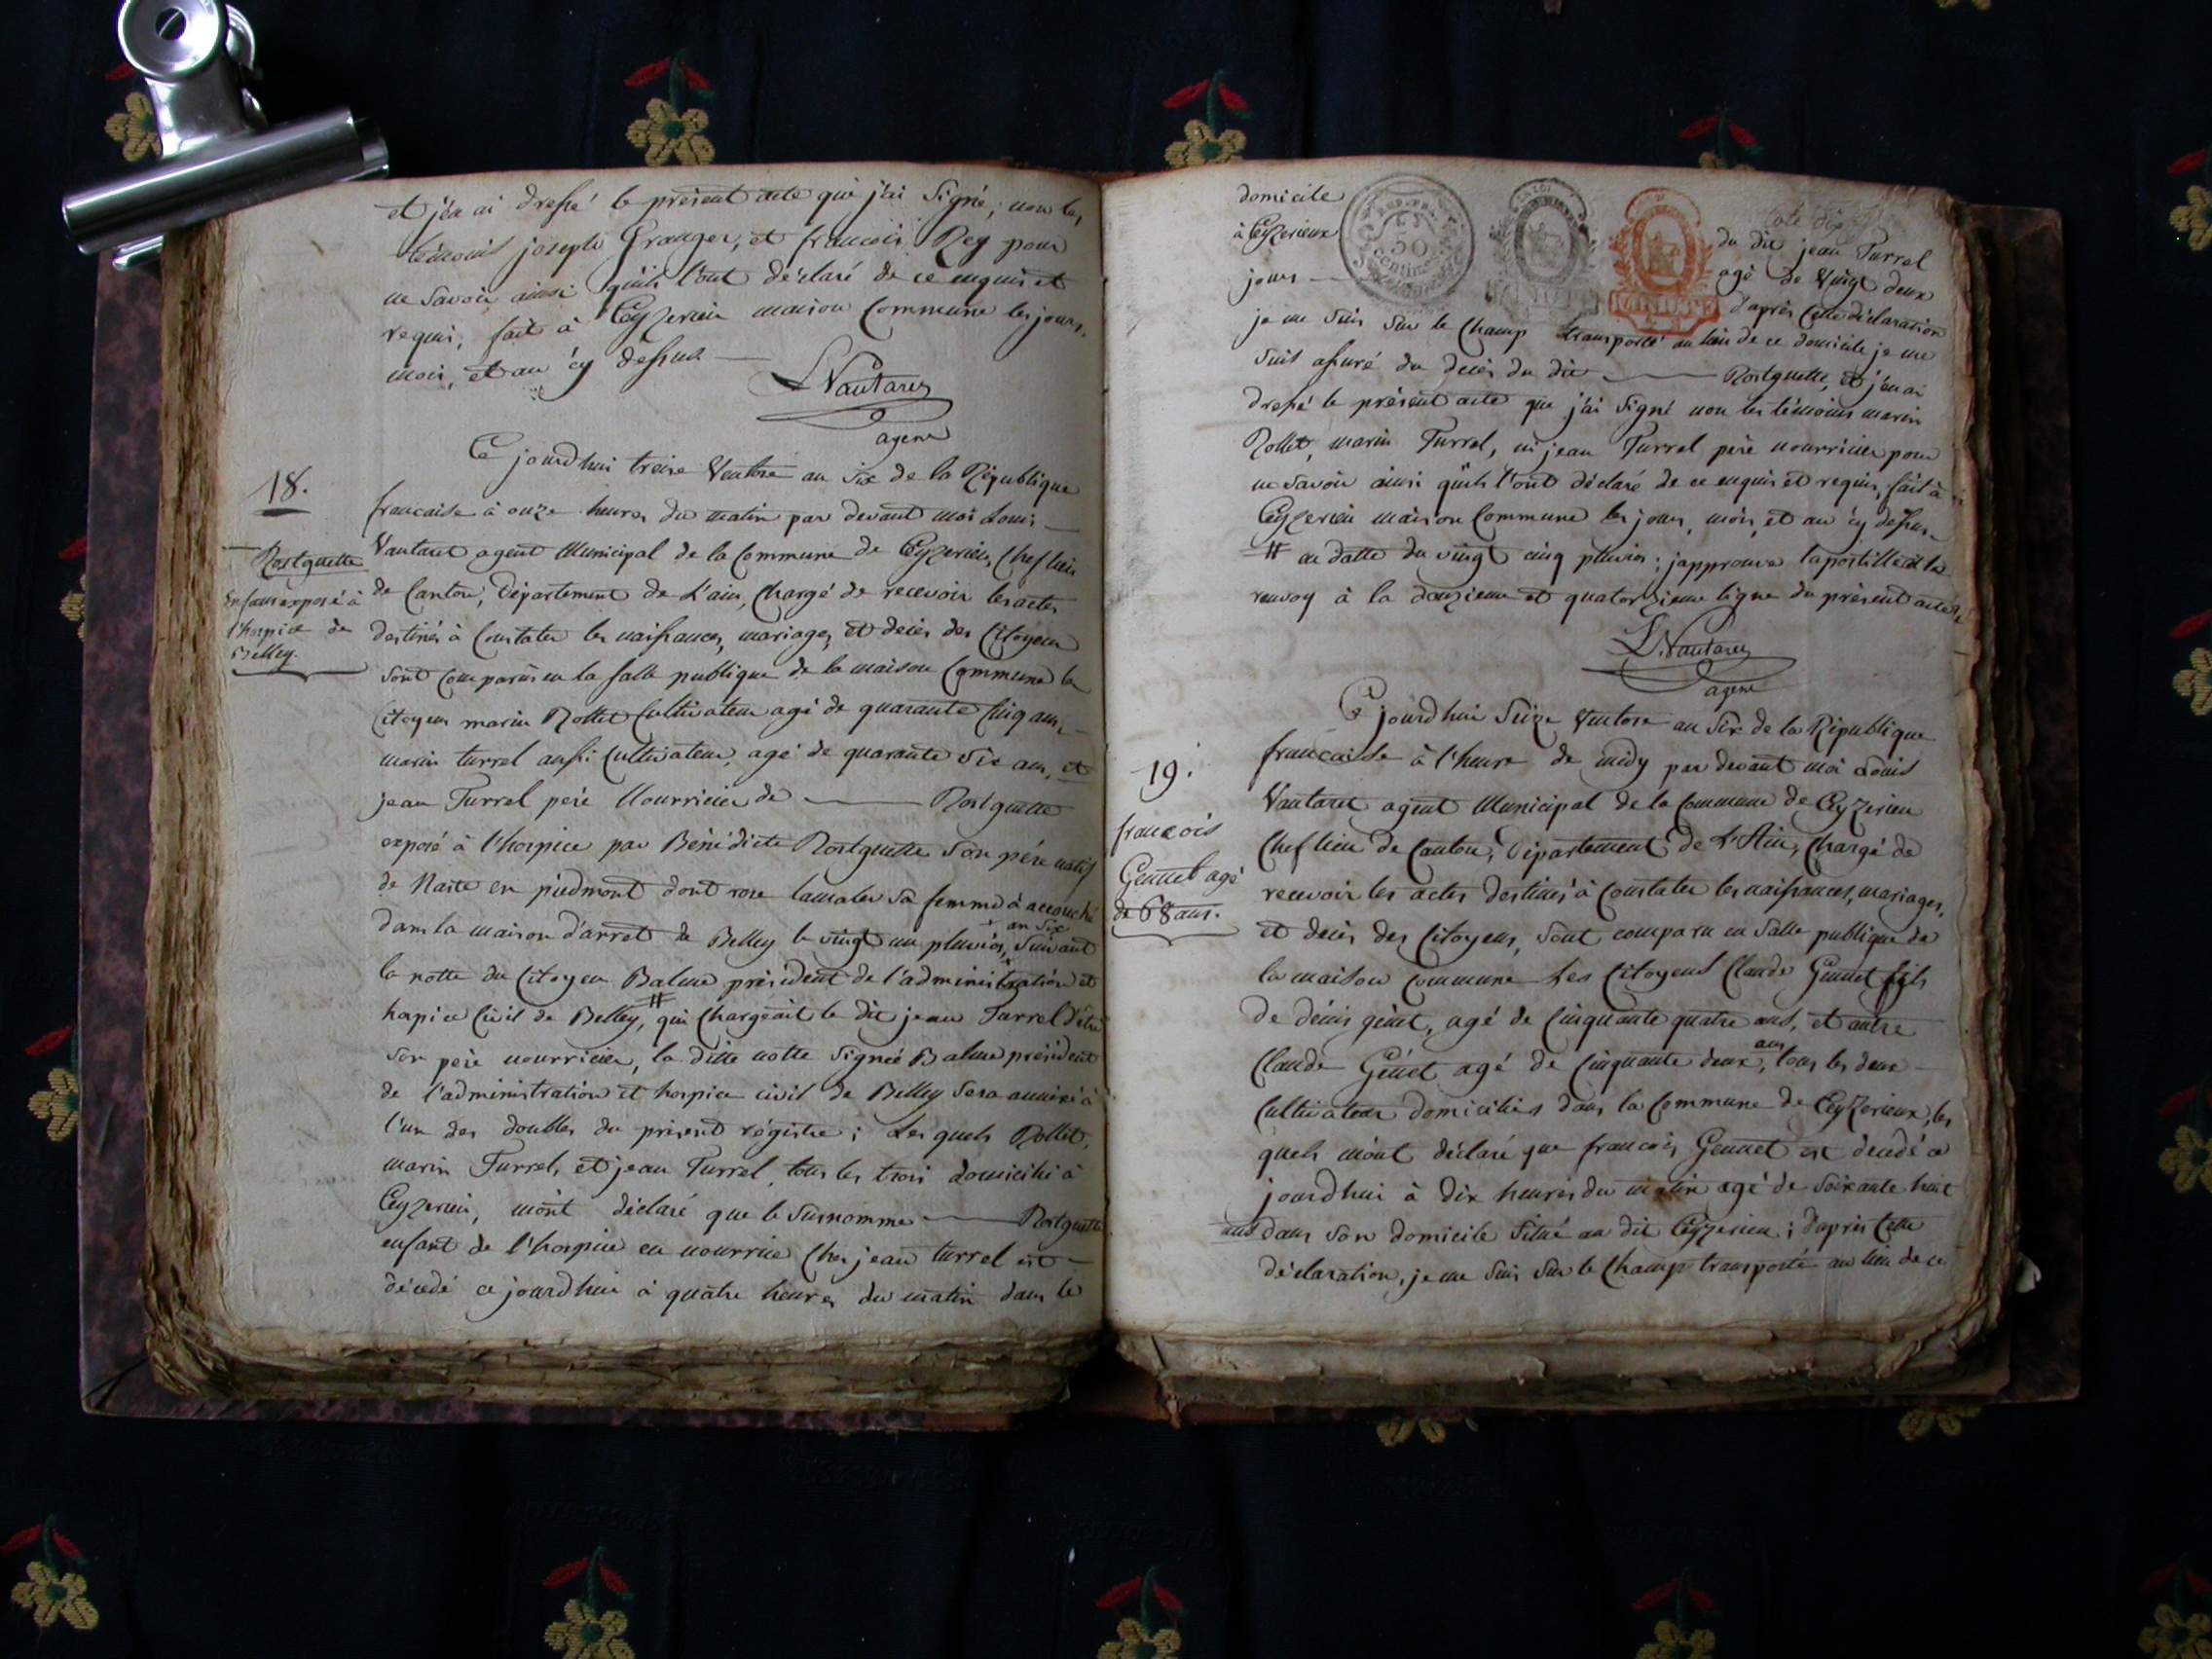 et j'en ai dressé le présent acte que j'ai signé, non les
témoins joseph Granger, et francois Rey pour
ne savoir ainsi quils l'ont déclaré de ce enquis et
requis, fait à Ceyzerieu maison Commune les jours,
mois, et an cy dessus
LVautaret
agent
18.
Rostguette
Enfant exposé à
l'hospice de
Belley.
Ce jourd'hui treize Ventose an six de la République
francaise à onze heures du matin par devant moi Louis
Vautaret agent Municipal de la Commune de Ceyzerieu, Chef lieu
de Canton, Département de L'ain, Chargé de recevoir les actes
destinés à Constater les naissances, mariages, et deces des Citoyens
sont comparus en la salle publique de la maison Commune le
Citoyens marin Rollet Cultivateur agé de quarante Cinq ans,
marin turrel aussi Cultivateur, agé de quarante six ans, et
jean Turrel pere Nourricier de Rostguette
exposé à l'hospice par Bénédicte Rostguette son pére natif
de Naste en piedmont dont rose sa femme à accouché
dans la maison d'arret de Belley le vingt un pluviôs, an six suivant
la notte du Citoyen Balme président de l'administration et
hospice Civil de Belley, # qui Chargeait le dit jean Turrel d'être
son pere nourricier, la ditte notte signée Balme président
de l'administration et hospice civil de Belley sera annéxé à
l'un des doubles du présent régistre ; Les quels Rollet,
marin Turrel, et jean Turrel, tous les trois domiciliés à
Ceyzerieu, m'ont déclaré que le surnommé Rostguette
enfant de l'hospice en nourrice Chez jean turrel est
décedé ce jourd'hui à quatre heures du matin dans le
domicile du dit jean Turrel
à Ceyzerieux agé de Vingt deux
jours D'après Cette déclaration
je me suis sur le Champ transporté au lieu de ce domicile je me
suis assuré du deces du dit Rostguette, et j'en ai
dressé le présent acte que j'ai signé non les témoins marin
Rollet, marin Turrel, ni jean Turrel père nourricier pour
ne savoir ainsi quils l'ont déclaré de ce enquis et requis, fait à
Ceyzerieu maison Commune les jours, mois, et an cy dessus
# en datte du vingt cinq pluviôs ; j'approuve l'apostille et le
renvoy à la douzieme et quatorzieme ligne du présent acte
LVautaret
agent
19.
francois
Gennet agé
de 68 ans.
Ce jourd'hui Seize Ventose an Six de la République
francaise à l'heure de midy par devant moi Louis
Vautaret agent Municipal de la Commune de Ceyzerieu
Chef lieu de Canton, Département de L'Ain, Chargé de
recevoir les actes destinés à Constater les naissances, mariages,
et deces des Citoyens, sont comparu en Salle publique de
la maison Commune Les Citoyens Claude Gennet fils
de dénis génet, agé de Cinquante quatre ans, et autre
Claude Génet agé de Cinquante deux ans, tous les deux
Cultivateur domiciliés dans la Commune de Ceyzerieux, les
quels m'ont déclaré que francois Gennet est decedé ce
jourd'hui à dix heures du matin agé de soixante huit
ans dans son domicile situé au dit Ceyzerieu ; d'après Cette
déclaration, je me suis sur le Champ transporté au lieu de ce
REP. FRA.
50
centimes